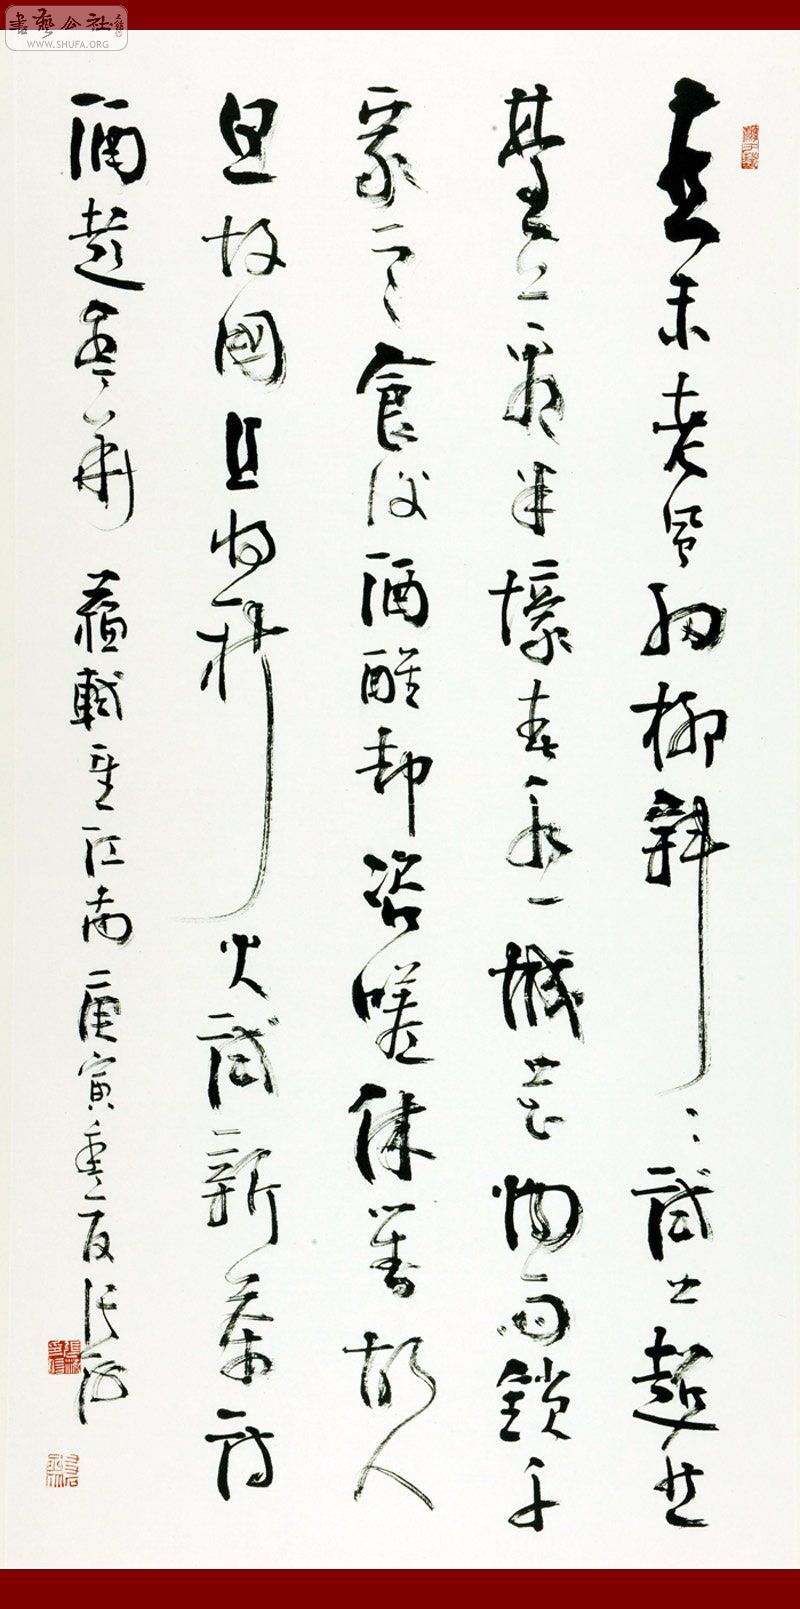 書藝公社
WWW.SHUFA.ORG
春未老風細柳斜〻試上超然
臺上看半壕春水一城花烟雨鎖千
家寒食後酒醒却咨嗟休對故人
思故國且將新火試新茶詩
酒趁年華 蘇軾望江南 庚寅重夏